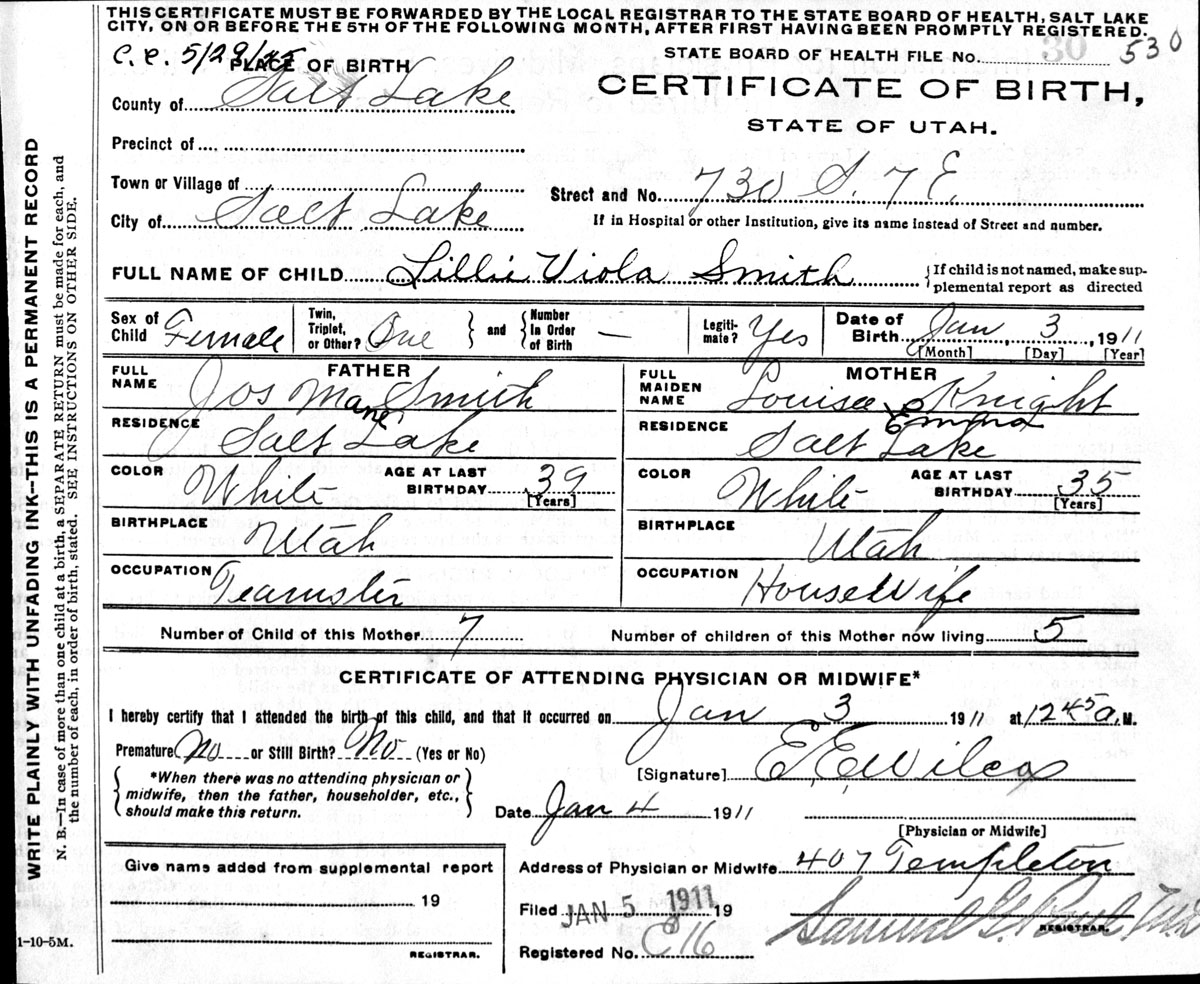 THIS CERTIFICATE MUST BE FORWARDED BY THE LOCAL REGISTRAR TO THE STATE BOARD OF HEALTH, SALT LAKE
CITY, ON OR BEFORE THE 5TH OF THE FOLLOWING MONTH, AFTER FIRST HAVING BEEN PROMPTLY REGISTERED.
C.C. 5/29/45
STATE BOARD OF HEALTH FILE NO. 30 530
PLACE OF BIRTH
CERTIFICATE OF BIRTH,
STATE OF UTAH.
County of Salt Lake
Precinct of
Town or Village of
Street and No. 730 S. 7 E.
City of Salt Lake
If in Hospital or other Institution, give its name instead of Street and number.
FULL NAME OF CHILD Lillie Viola Smith
{If child is not named, make sup-
plemental report as directed
Sex of Child Female
Twin, Triplet, or Other? One } and { Number In Order of Birth —
Legiti-mate? Yes
Date of Birth Jan 3, 1911
[Month] [Day] [Year]
FATHER
FULL NAME Jos Mane Smith
RESIDENCE Salt Lake
COLOR White AGE AT LAST BIRTHDAY 39 [Years]
BIRTHPLACE Utah
OCCUPATION Teamster
MOTHER
FULL MAIDEN NAME Louisa Emma Knight
RESIDENCE Salt Lake
COLOR White AGE AT LAST BIRTHDAY 35 [Years]
BIRTHPLACE Utah
OCCUPATION HouseWife
Number of Child of this Mother 7 Number of children of this Mother now living 5
CERTIFICATE OF ATTENDING PHYSICIAN OR MIDWIFE*
I hereby certify that I attended the birth of this child, and that it occurred on Jan 3 1911 at 1245 a. M.
Premature No or Still Birth? No (Yes or No)
*When there was no attending physician or
midwife, then the father, householder, etc.,
should make this return.
[Signature] E E Wilcox
Date Jan 4 1911
[Physician or Midwife]
Give name added from supplemental report
19
REGISTRAR.
Address of Physician or Midwife 407 Templeton
Filed JAN 5 1911 19
Samuel G. Paul M.D.
REGISTRAR.
Registered No. C 16
1-10-5M.
WRITE PLAINLY WITH UNFADING INK—THIS IS A PERMANENT RECORD
N. B.—In case of more than one child at a birth, a SEPARATE RETURN must be made for each, and
the number of each, in order of birth, stated. SEE INSTRUCTIONS ON OTHER SIDE.